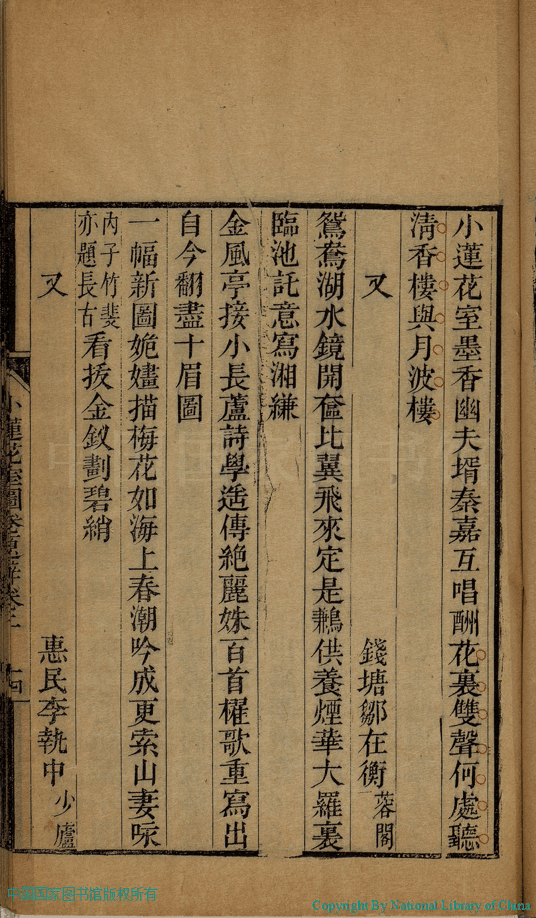 小蓮花室墨香幽夫壻秦嘉互唱酬花裏雙聲何處聽
清香樓與月波樓
又
錢塘鄒在衡蓉閣
鴛鴦湖水鏡開奩比翼飛來定是鶼供養煙華大羅裏
臨池託意寫湘縑
金風亭接小長蘆詩學遙傳絶麗姝百首櫂歌重寫出
自今翻盡十眉圖
一幅新圖姽嫿描梅花如海上春潮吟成更索山妻咏
內子竹斐亦題長古看拔金釵劃碧綃
又
惠民李執中少廬
小蓮花室圖卷題辭卷二
十四
中国国家图书馆版权所有
Copyright By National Library of China